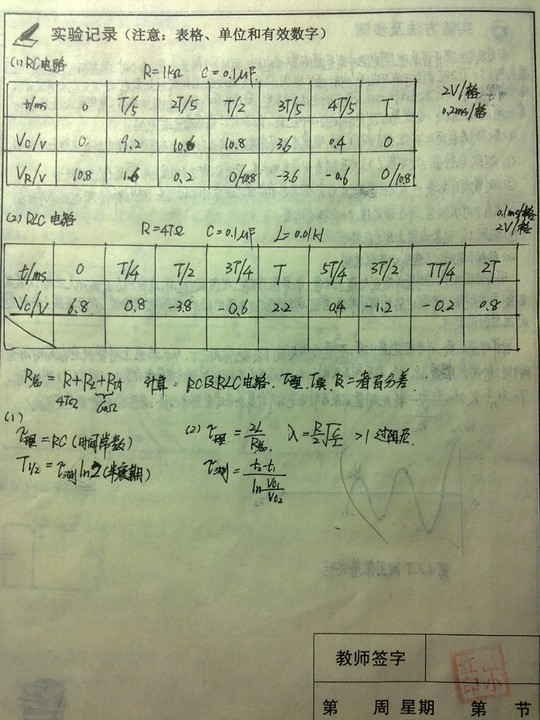 实验记录(注意:表格、单位和有效数字)
(1) RC电路 R=1kΩ C=0.1μF 2V/格
0.2ms/格
t/ms 0 T/5 2T/5 T/2 3T/5 4T/5 T
Vc/V 0 9.2 10.6 10.8 3.6 0.4 0
VR/V 10.8 1.6 0.2 0/10.8 -3.6 -0.6 0/10.8
(2) RLC电路 R=47Ω C=0.1μF L=0.01H 0.1ms/格
2V/格
t/ms 0 T/4 T/2 3T/4 T 5T/4 3T/2 7T/4 2T
Vc/V 6.8 0.8 -3.8 -0.6 2.2 0.4 -1.2 -0.2 0.8
R总=R+RL+R内 计算:RC及RLC电路. T理. T实. 百分差.
47Ω 60Ω
(1) (2)
τ理=RC(时间常数) τ理=2L/R总 λ=R/2√C/L >1 过阻尼.
T1/2=τ测ln2(半衰期) τ测=t2-t1/ln Vc1/Vc2
教师签字
第 周 星期 第 节